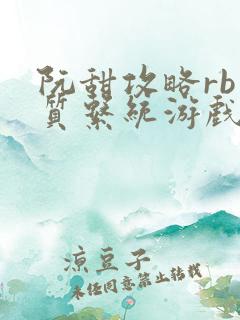 阮甜攻略rb
质系统游戏
凉豆子
未经同意禁止转载